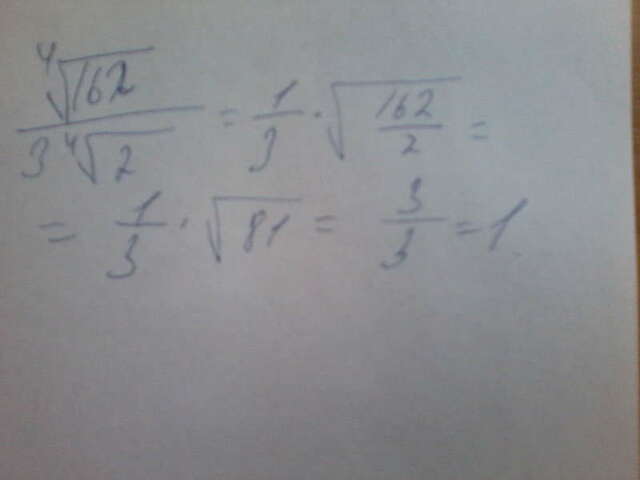 ⁴√162 / 3 ⁴√2 = 1/3 · √(162/2) =
= 1/3 · √81 = 3/3 = 1